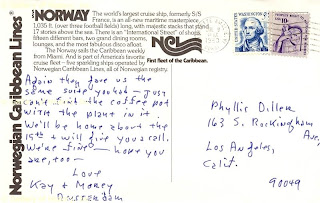 Norwegian Caribbean Lines
NORWAY
The world's largest cruise ship, formerly S/S
France, is an all-new maritime masterpiece,
1,035 ft. (over three football fields) long, with majestic stacks that stand
17 stories above the sea. There is an "International Street" of shops,
fifteen different bars, two grand dining rooms,
lounges, and the most fabulous disco afloat.
The Norway sails the Caribbean weekly
from Miami. And is part of America's favorite
cruise fleet – five sparkling ships operated by
Norwegian Caribbean Lines, all of Norwegian registry.
NCL
First fleet of the Caribbean.
Again they gave us the
same suite you had — just
can't find the coffee pot
with the plant in it.
We'll be home about the
15th & will give you a call.
We're fine — hope you
are, too —
Love
Kay & Morey
Amsterdam
Phyllis Diller
163 S. Rockingham
Ave,
Los Angeles,
Calif.
90049